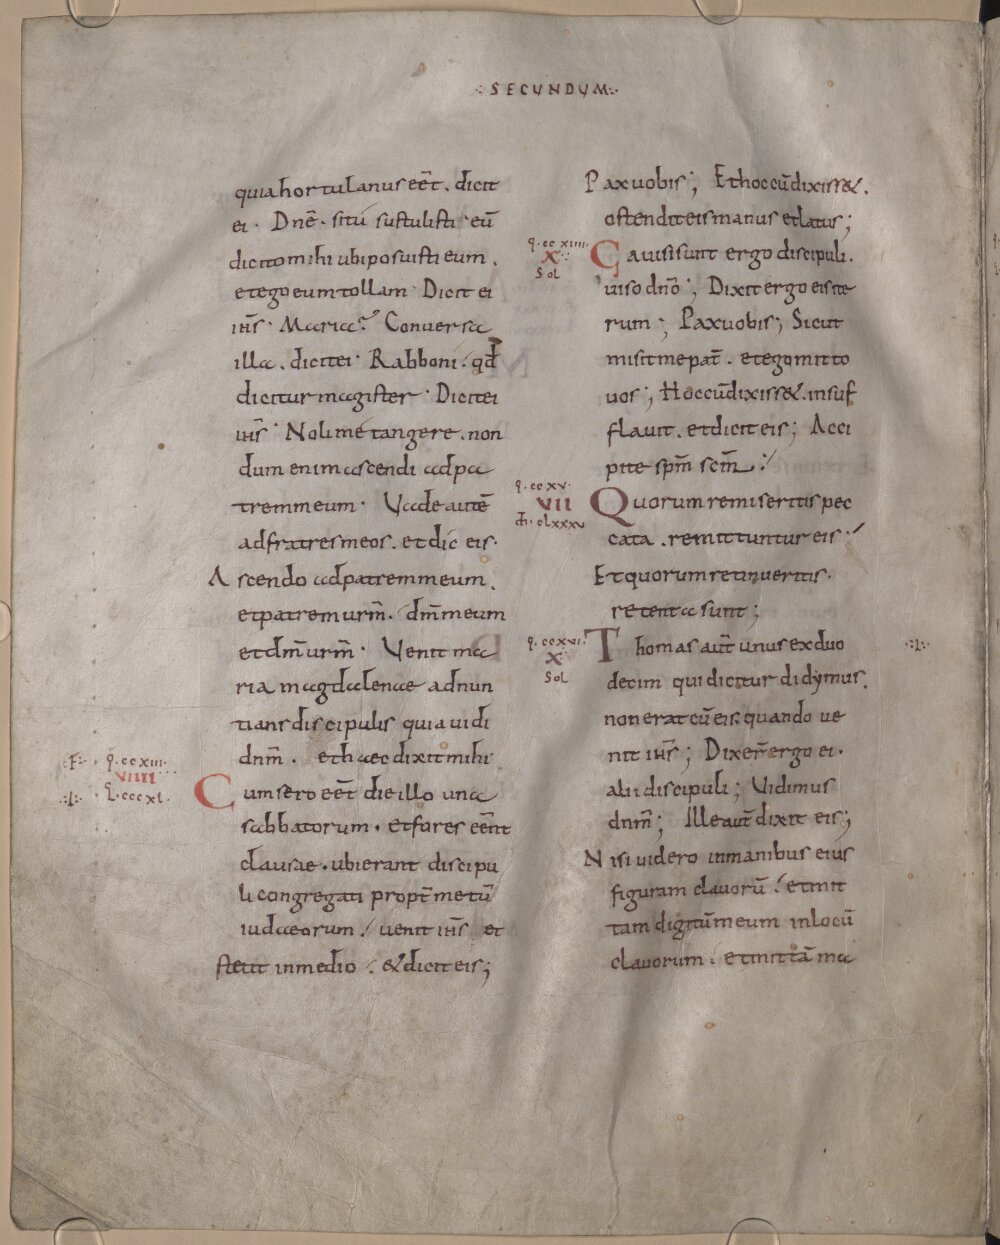 ·:SECUNDUM:·
quia hortulanus eēt. dicit
ei· Dnē· si tú sustulisti eū̄
dicito mihi ubi posuisti eum.
et ego eum tollam· Dicit ei
ihs̄· Maria? Conversa
illa. dicit ei· Rabboni. qđ
dicitur magister· Dicit ei
ihs̄· Noli me tangere. non
dum enim ascendi ad pa
trem meum· Vade autē
ad fratres meos. et dic eis·
Ascendo ad patrem meum.
et patrem urm̄. dm̄ meum
et dm̄ urm̄· Venit ma
ria magdalenae adnun
tians discipulis quia uidi
dnm̄. et haec dixit mihi·
·F· q. ccxiii·
VIIII
·I· L. cccxl.
Cum sero eēt die illo una
sabbatorum. Et fores eēnt
clausae. ubi erant discipu
li congregati propt̄ metū
iudaeorum. uenit ihs̄ et
stetit in medio. & dicit eis;
Pax uobis; Et hoc cū dixiss&.
ostendit eis manus et latus;
q. ccxiiii.
X
Sol
Gauisi sunt ergo discipuli.
uiso dnō; Dixit ergo eis ite
rum; Pax uobis; Sicut
misit me pat̄. et ego mitto
uos; Hoc cū dixiss&. insuf
flauit. et dicit eis; Acci
pite spm̄ scm̄.
q. ccxv·
VII
clxxxv
Quorum remiseritis pec
cata. remittuntur eis·
Et quorum retinueritis·
retenta sunt;
q. ccxvi·
X
Sol
Thomas aut̄ unus ex duo
·I·
decim qui dicitur didymus.
non erat cū eis quando ue
nit ihs̄; Dixer̄ ergo ei·
alii discipuli; Vidimus
dnm̄; Ille aut̄ dixit eis;
Nisi uidero in manibus eius
figuram clauorū. et mit
tam digitū meum in locū
clauorum. et mittā ma